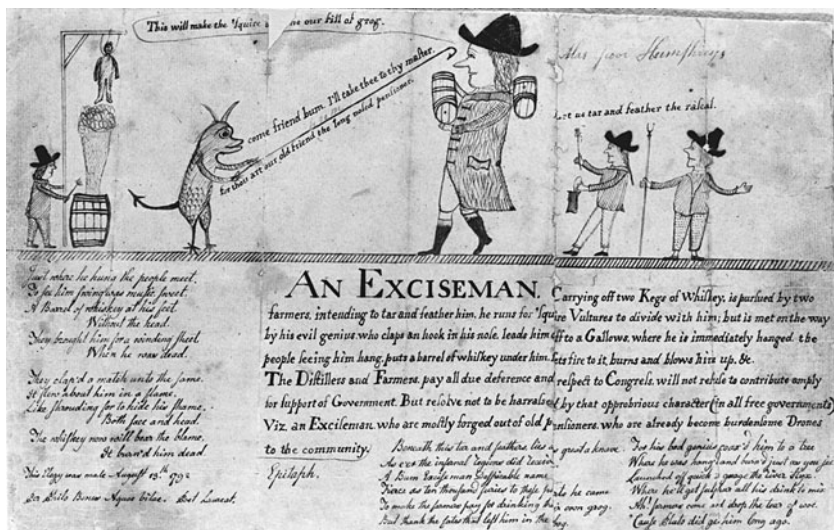 This will make the 'Squire our fill of grog.
come friend bum. I'll take thee to thy master.
for thou art our old friend the long nosed pensioner.
poor Humphreys
us tar and feather the rascal.
Just where he hung the people meet.
To see him swing was music sweet.
A Barrel of whiskey at his feet.
Without the head.
They brought him for a winding sheet
When he was dead.
They clap'd a match unto the same.
It flew about him in a flame.
Like shrouding for to hide his shame.
Both face and head.
The whiskey now will bear the blame.
It burn'd him dead
This Elegy was made August 13th 1792
AN EXCISEMAN,
Carrying off two Kegs of Whiskey, is pursued by two
farmers, intending to tar and feather him, he runs for 'Squire Vultures to divide with him; but is met on the way
by his evil genius who claps an hook in his nose, leads him off to a Gallows, where he is immediately hanged the
people seeing him hang, puts a barrel of whiskey under him, sets fire to it, burns and blows him up, &c.
The Distillers and Farmers, pay all due deference and respect to Congress, will not refuse to contribute amply
for support of Government. But resolve not to be harrassed by that opprobrious character (in all free governments)
Viz. an Exciseman, who are mostly forged out of old pensioners, who are already become burdensome Drones
to the community.
Epitaph.
Beneath this tar and feathers, lies as great a knave
As e'er the infernal legions did
A Bum Exciseman despicable name
Fierce as ten thousand furies to these he came
To make the farmers pay for drinking own grog.
But thank the fates that left him in the bog.
For his bad genius coax'd him to a tree
Where he was hang'd and burn'd just as you
Where he'll get sulphur all his drink to mix
Ah! farmers come and drop the tear of woe.
'Cause did him long ago.